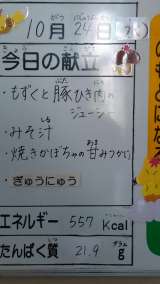 10月24日
今日の献立
・もずくと豚ひき肉の
ジューシー
・みそ汁
・焼きかぼちゃの甘みつがけ
・ぎゅうにゅう
エネルギー 557 Kcal
たんぱく質 21.9 g